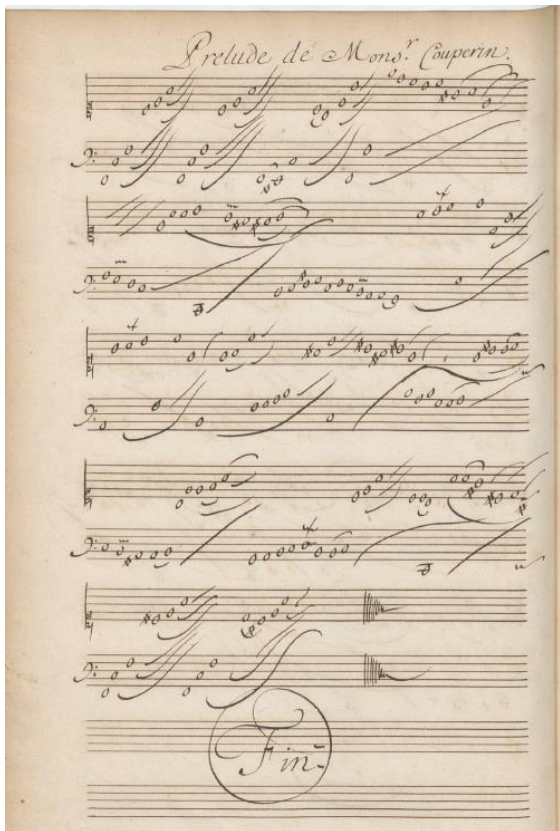 Prelude de Monsr. Couperin.
Fin